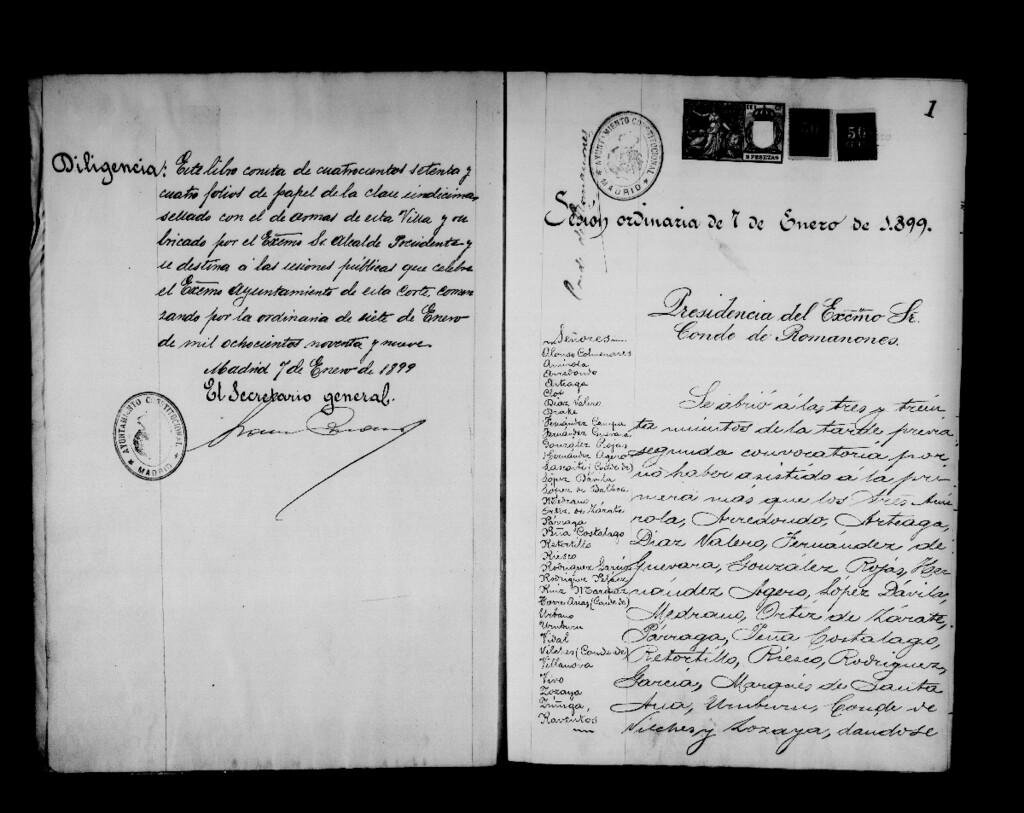 Diligencia: Este libro consta de cuatrocientos setenta y
cuatro folios de papel de la clase undécima
sellado con el de armas de esta Villa y ru
bricado por el Excmo Sr. Alcalde Presidente y
se destina á las sesiones públicas que celebre
el Excmo Ayuntamiento de esta Corte, comen
zando por la ordinaria de siete de Enero
de mil ochocientos noventa y nueve.
Madrid 7 de Enero de 1899
El Secretario general.
AYUNTAMIENTO CONSTITUCIONAL
MADRID
1
AYUNTAMIENTO CONSTITUCIONAL
MADRID
3 PESETAS
50
50
Conde de Romanones
Sesión ordinaria de 7 de Enero de 1899.
Presidencia del Excmo Sr.
Conde de Romanones.
Señores
Alonso Colmenares
Amírola
Arredondo
Arteaga
Clot
Díaz Valero
Drake
Fernández Campa
Fernández Guevara
González Rojas
Hernández Agero
López Dávila
López de Balboa
Medrano
Ortiz de Zárate
Párraga
Peña Costalago
Retortillo
Riesco
Rodríguez García
Rodríguez Peláez
Ruiz
Torre Arias (Conde de)
Urbano
Umburu
Vidal
Vilches (Conde de)
Villanova
Vivo
Zozaya
Zúñiga,
Raventós
Se abrió á las tres y trein
ta minutos de la tarde previa
segunda convocatoria por
no haber asistido á la pri
mera más que los Sres Amí
rola, Arredondo, Arteaga,
Díaz Valero, Fernández de
Guevara, González Rojas, Her
nández Agero, López Dávila,
Medrano, Ortiz de Zárate,
Párraga, Peña Costalago,
Retortillo, Riesco, Rodríguez,
García, Marqués de Santa
Ana, Umburu, Conde de
Vilches y Zozaya, dandose